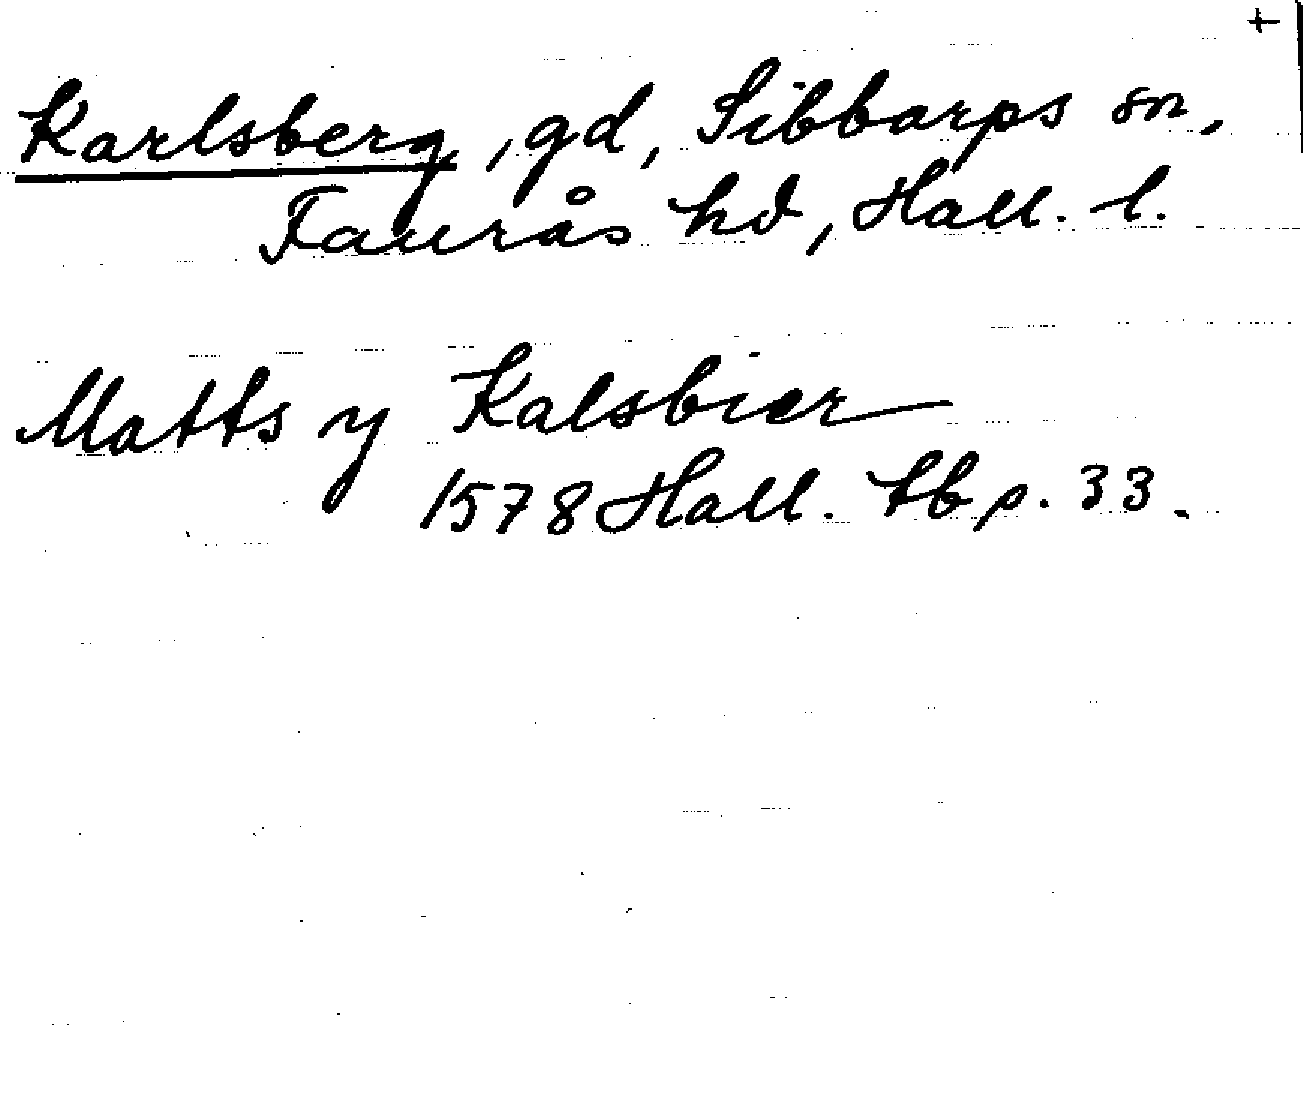 +
Karlsberg, gd, Sibbarps sn,
Faurås hd, Hall. l.
Matts y Kalsbier
1578 Hall. tb p. 33.